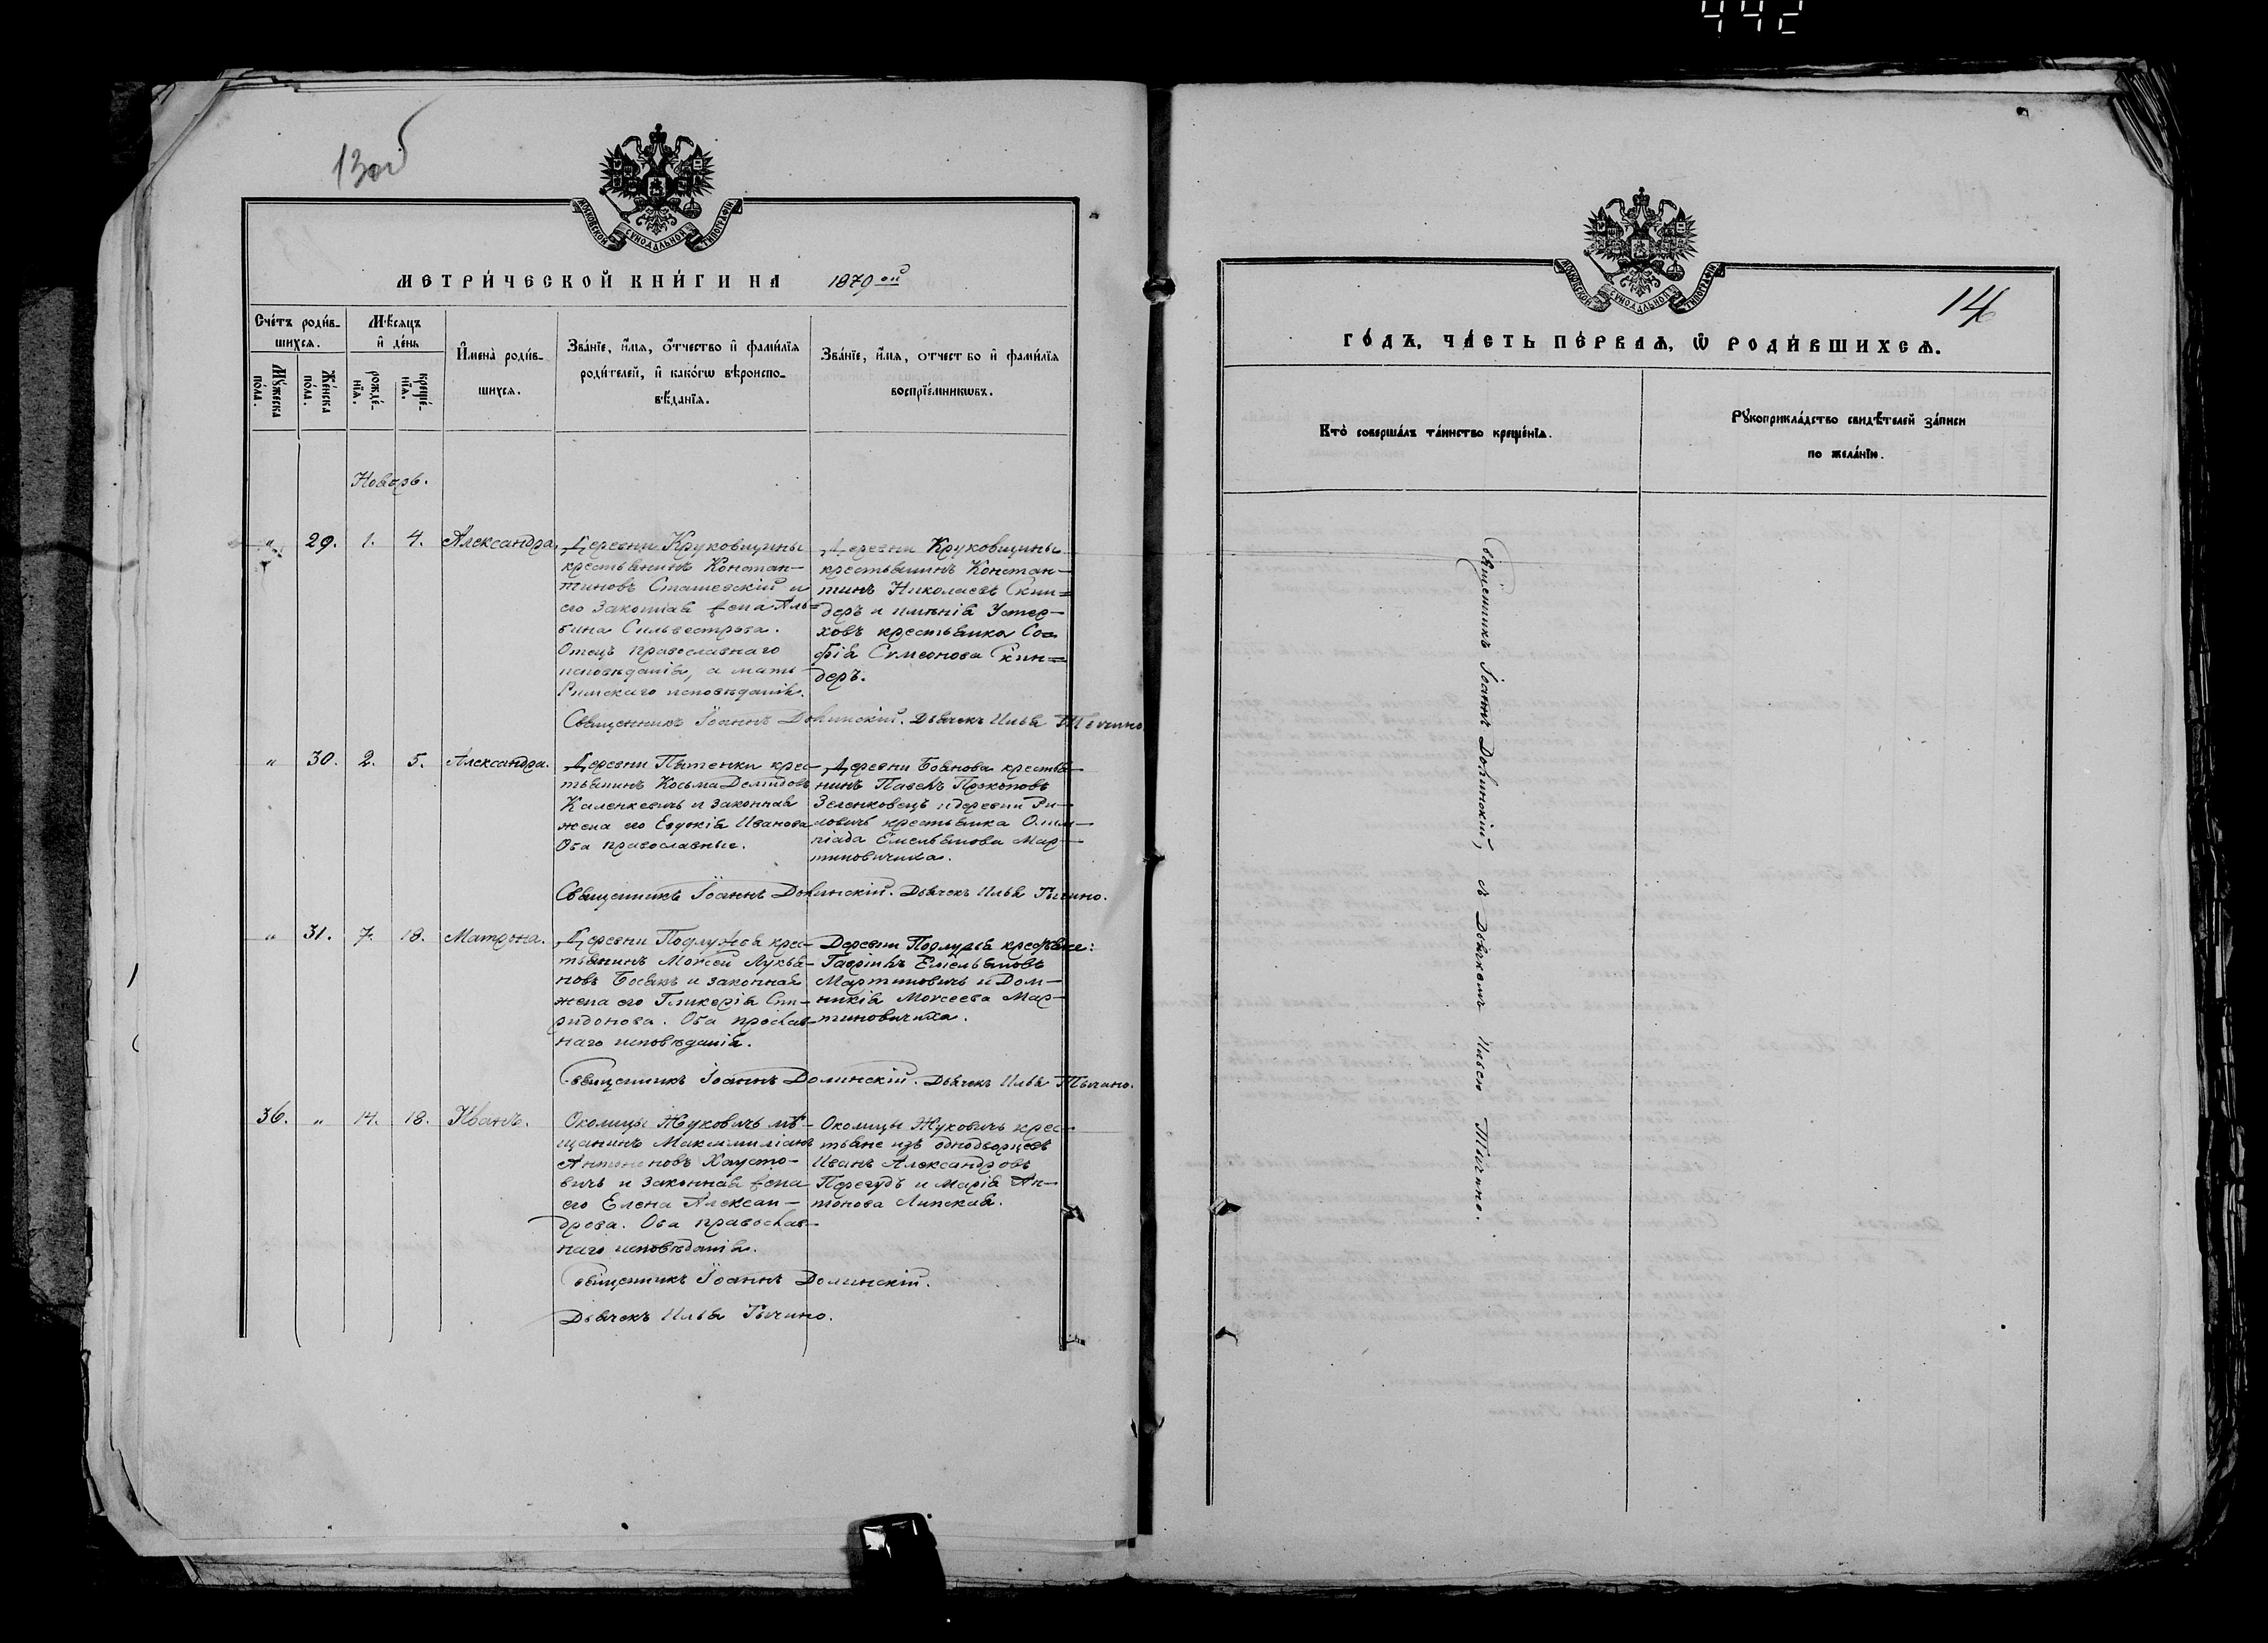 442
13об
МОСКОВСКОЙ СУНОДАЛЬНОЙ ТИПОГРАФІИ
МЕТРИ́ЧЕСКОЙ КНИ́ГИ НА 1879 ый
Сче́тъ роди́в-
шихсѧ.
Мѣ́сѧцъ
и҆ де́нь
И҆мена̀ роди́в-
шихсѧ.
Зва́нїе, и҆́мѧ, ѻ҆́тчество и҆ фами́лїѧ
роди́телей, и҆ како́гѡ вѣроиспо-
вѣ́данїѧ.
Зва́нїе, и҆́мѧ, отчество и҆ фами́лїѧ
воспрїе́мникѡвъ.
Мꙋ́жеска
по́ла.
Же́нска
по́ла.
рожде́-
нїѧ.
креще́-
нїѧ.
Ноябрь.
" 29. 1. 4. Александра.
Деревни Круковщины
крестьянинъ Констан-
тиновъ Сташевскій и
его законная жена Аль-
бина Сильвестрова.
Отецъ православнаго
исповѣданія, а мать
Римскаго исповѣданія.
Деревни Круковщины
крестьянинъ Констан-
тинъ Николаевъ Скин-
деръ и имѣнія Устер-
ховъ крестьянка Со-
фія Симеонова Скин-
деръ.
Священникъ Іоаннъ Долинскій. Дьячекъ Илья Тычино.
" 30. 2. 5. Александра.
Деревни Пытенки крес-
тьянинъ Косьма Демидовъ
Каленкевичъ и законная
жена его Евдокія Иванова
Оба православные.
Деревни Боянова крестья-
нинъ Павелъ Прокоповъ
Зеленковецъ и деревни Ри-
ловичъ крестьянка Олим-
піада Емельянова Мар-
тиновичиха.
Священникъ Іоаннъ Долинскій. Дьячекъ Илья Тычино.
" 31. 7. 18. Матрона.
Деревни Подлужья крес-
тьянинъ Моисей Лукья-
новъ Босякъ и законная
жена его Гликерія Спи-
ридонова. Оба правосла-
наго исповѣданія.
Деревни Подлужья крестьяне:
Гавріилъ Емельяновъ
Мартиновичъ и Дом-
никія Моисеева Мар-
тиновичиха.
Священникъ Іоаннъ Долинскій. Дьячекъ Илья Тычино.
36. " 14. 18. Иванъ.
Околицы Жуковичъ мѣ-
щанинъ Максимиліанъ
Антоновъ Хаусто-
вичъ и законная жена
его Елена Алексан-
дрова. Оба православ-
наго исповѣданія.
Околицы Жуковичъ крес-
тьяне изъ однодворцевъ
Иванъ Александровъ
Перегудъ и Марія Ан-
тонова Липская.
Священникъ Іоаннъ Долинскій.
Дьячекъ Илья Тычино.
МОСКОВСКОЙ СУНОДАЛЬНОЙ ТИПОГРАФІИ
14
ГО́ДЪ, ЧА́СТЬ ПЕ́РВАѦ, Ѡ҆ РОДИ́ВШИХСѦ.
Кто̀ соверша́лъ та́инство креще́нїѧ.
Рꙋкоприкла́дство свидѣ́телей за́писи
по жела́нїю.
Священникъ Іоаннъ Долинскій, съ Дьячкомъ Ильею Тычино.